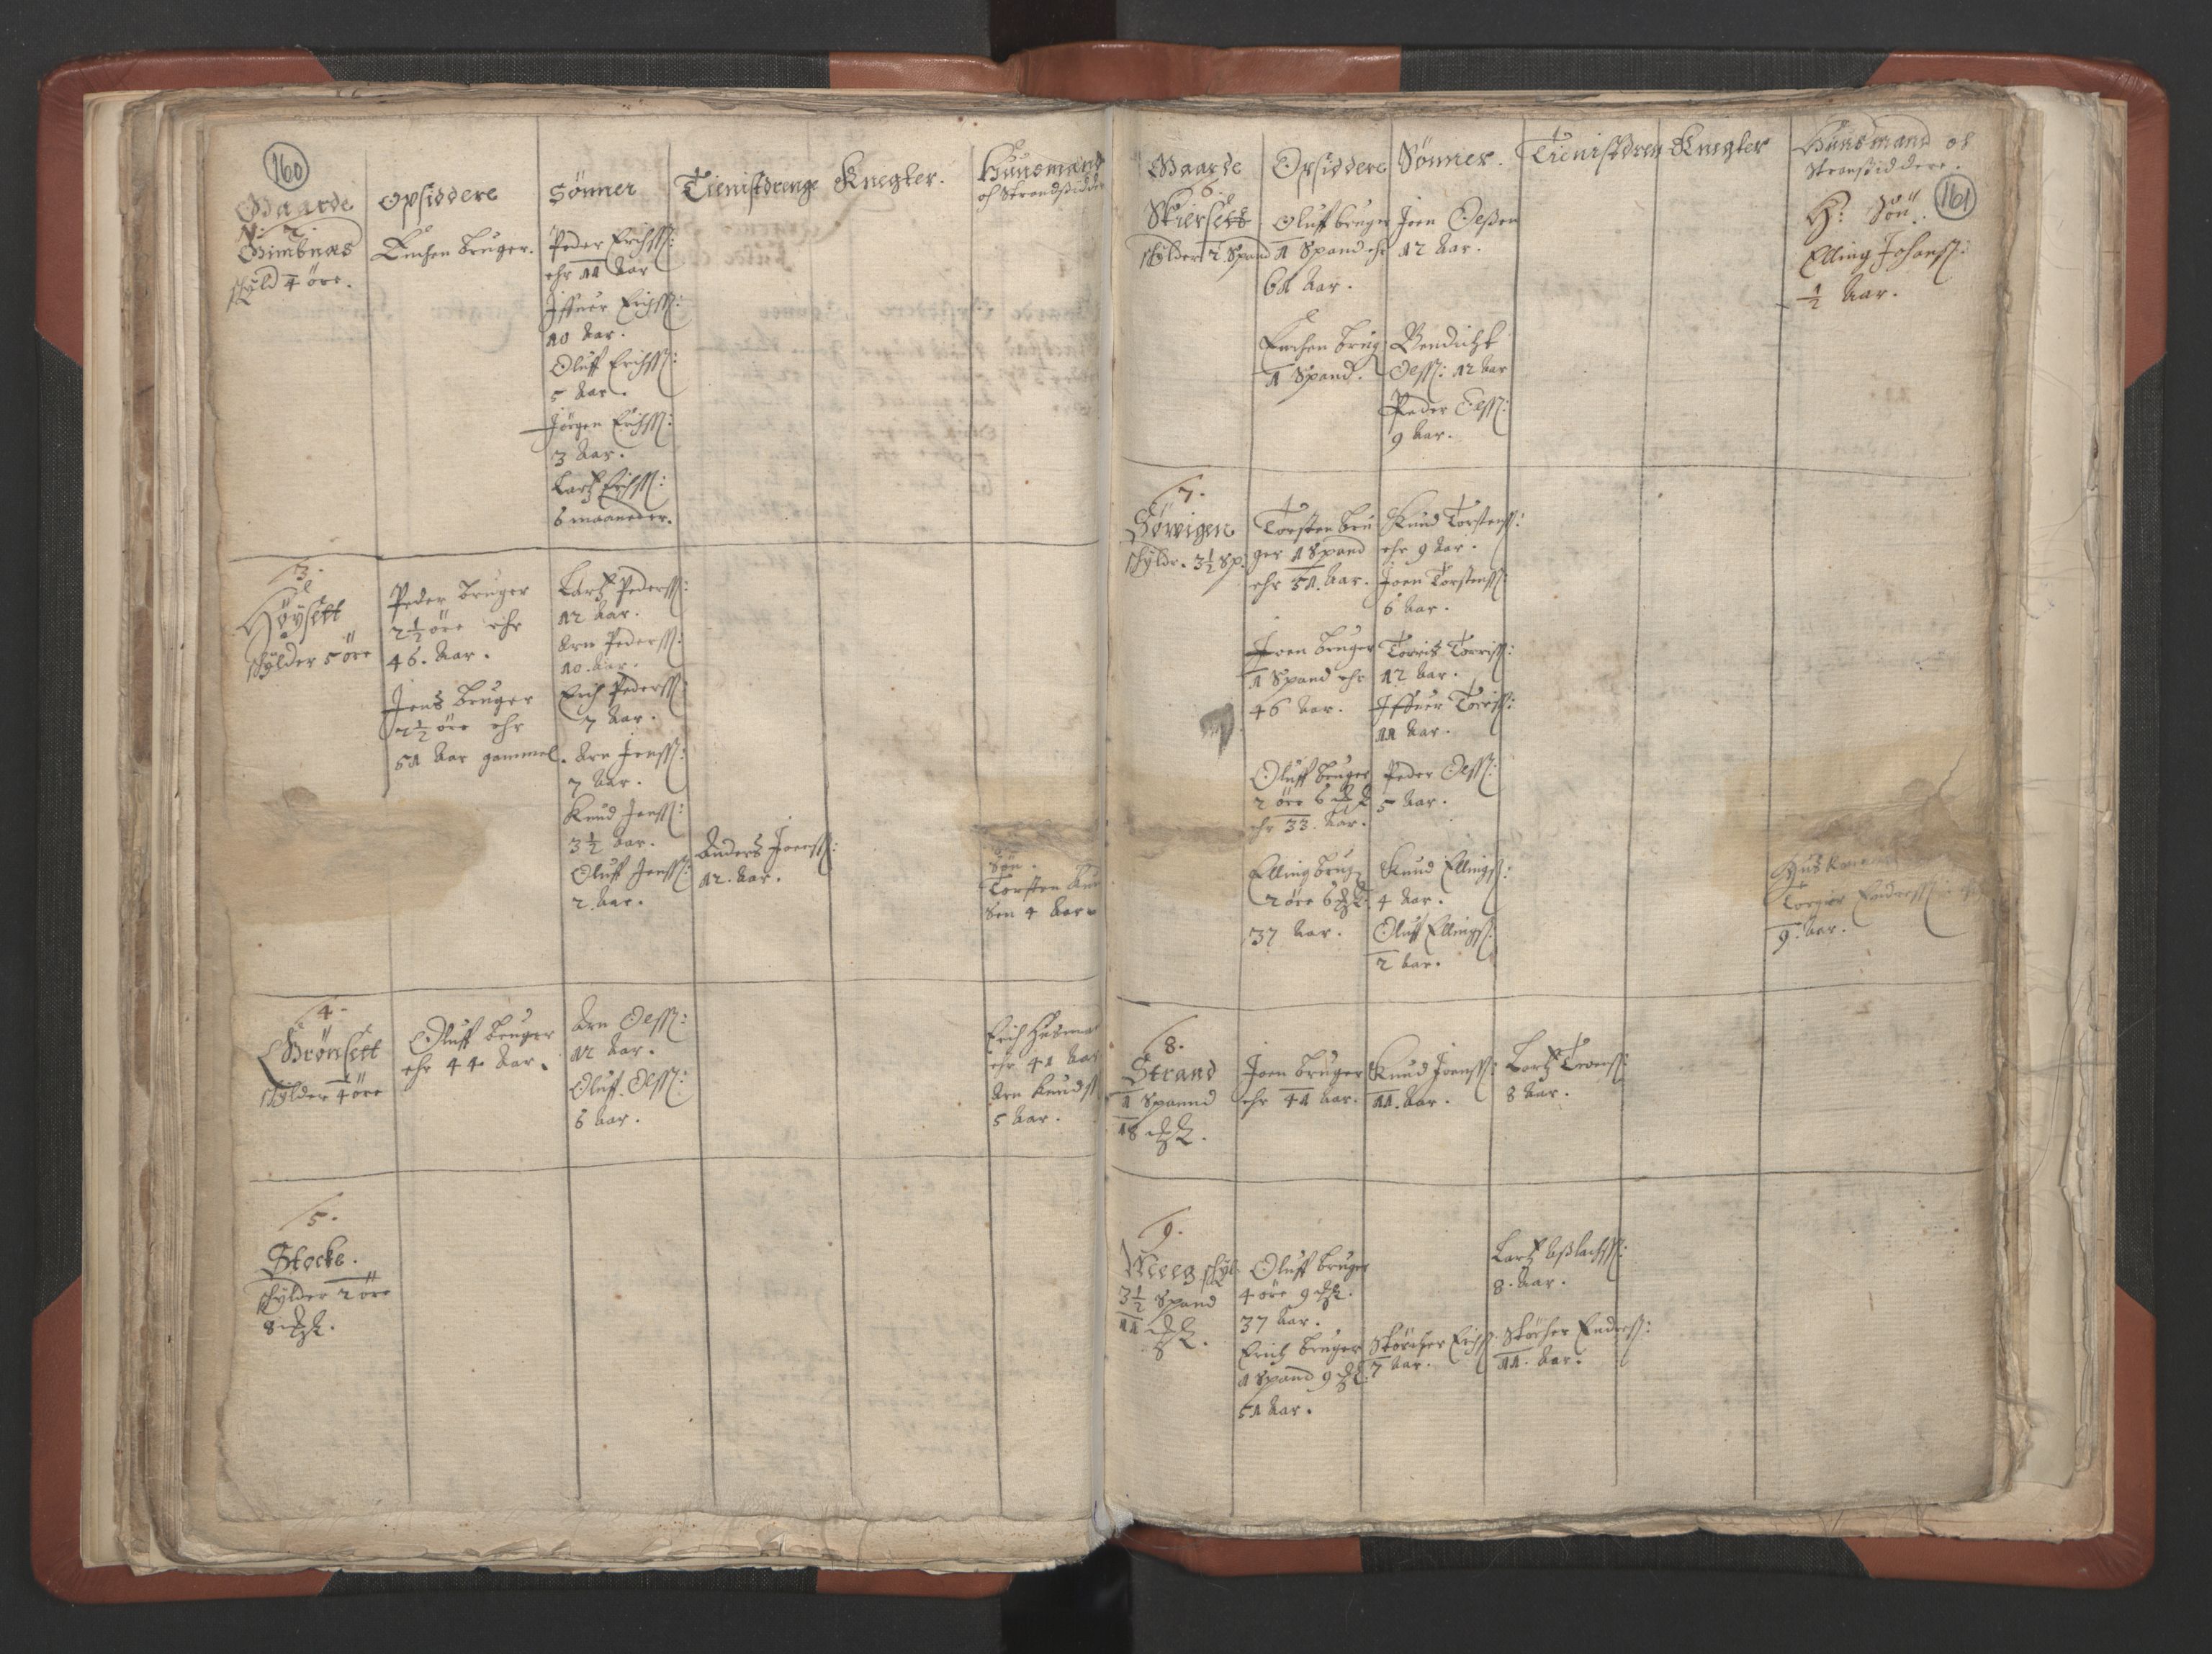 160
Gaarde
Opsiddere
Sönner
Tienistdrenge
Knegter.
Huusmænd
oc Strandsidder
N: 2.
Gimbnæs
schyld 4 öre.
Enchen bruger.
Peder Erichss:
ehr 11 Aar
Iffuer Erichss:
10 Aar.
Oluff Erichss:
5 Aar.
Jörgen Erichss:
3 Aar.
Lartz Erichss:
6 maaneder.
3.
Höysett
schylder 5 öre
Peder bruger
2½ öre ehr
46. Aar.
Jens bruger
2½ öre ehr
51 Aar gammel.
Lartz Pederss:
12 Aar.
Arn Pederss:
10. Aar.
Erich Pederss:
7 Aar.
Arn Jenss:
7 Aar.
Knud Jenss:
3½ Aar.
Oluff Jenss:
2. Aar.
Anders Joenss:
12. Aar.
Sön.
Torsten
Sen 4 Aar
4.
Brönsett
schylder 4 öre
Oluff bruger
ehr 44 Aar.
Arn Oelss:
12 Aar.
Oluff Oelss:
6 Aar.
Erich Husma
ehr 41 Aar
Arn Knudss
5 Aar.
5.
Stocke.
schylder 2 öre
8
161
Gaarde
Opsiddere
Sönner.
Tienistdren
Knegter
Huusmand oc
Stransiddere.
6.
Skiersett
schylder 2. Spand
Oluff bruger
1 Spand ehr
61 Aar.
Enchen brug
1 Spand.
Joen Oelßen
12 Aar.
Bendicht
Oelss: 12 Aar
Peder Oelss:
9 Aar.
H: Sön.
Elling Johanss:
½ Aar.
7.
Sörvigen
schyldr. 3½ Sp.
Torsten bru
ger 1 Spand
ehr 51. Aar.
Joen bruger
1 Spand ehr
46 Aar.
Oluff bruger
2 öre 6
ehr 33. Aar.
Elling brug
2 öre 6
37 Aar.
Knud Torstenss:
ehr 9 Aar.
Joen Torstenss:
6 Aar.
Torris Torriss:
12 Aar.
Iffuer Torriss:
11 Aar.
Peder Oelss:
5 Aar.
Knud Ellingss:
4 Aar.
Oluff Ellingss:
2 Aar.
Torgier Endress
9. Aar.
8.
Strand
1 Spannd
18
Joen bruger
ehr 41 Aar.
Knud Joenss:
11. Aar.
Lartz
8 Aar.
9.
schyl
3½ Spand
11
Oluff bruger
4 öre 9
37 Aar.
Erich bruger
1 Spand 9
51 Aar.
Störcher Erichss
7 Aar.
Lartz Aßlachss:
8. Aar.
Störcher Endress:
11. Aar.